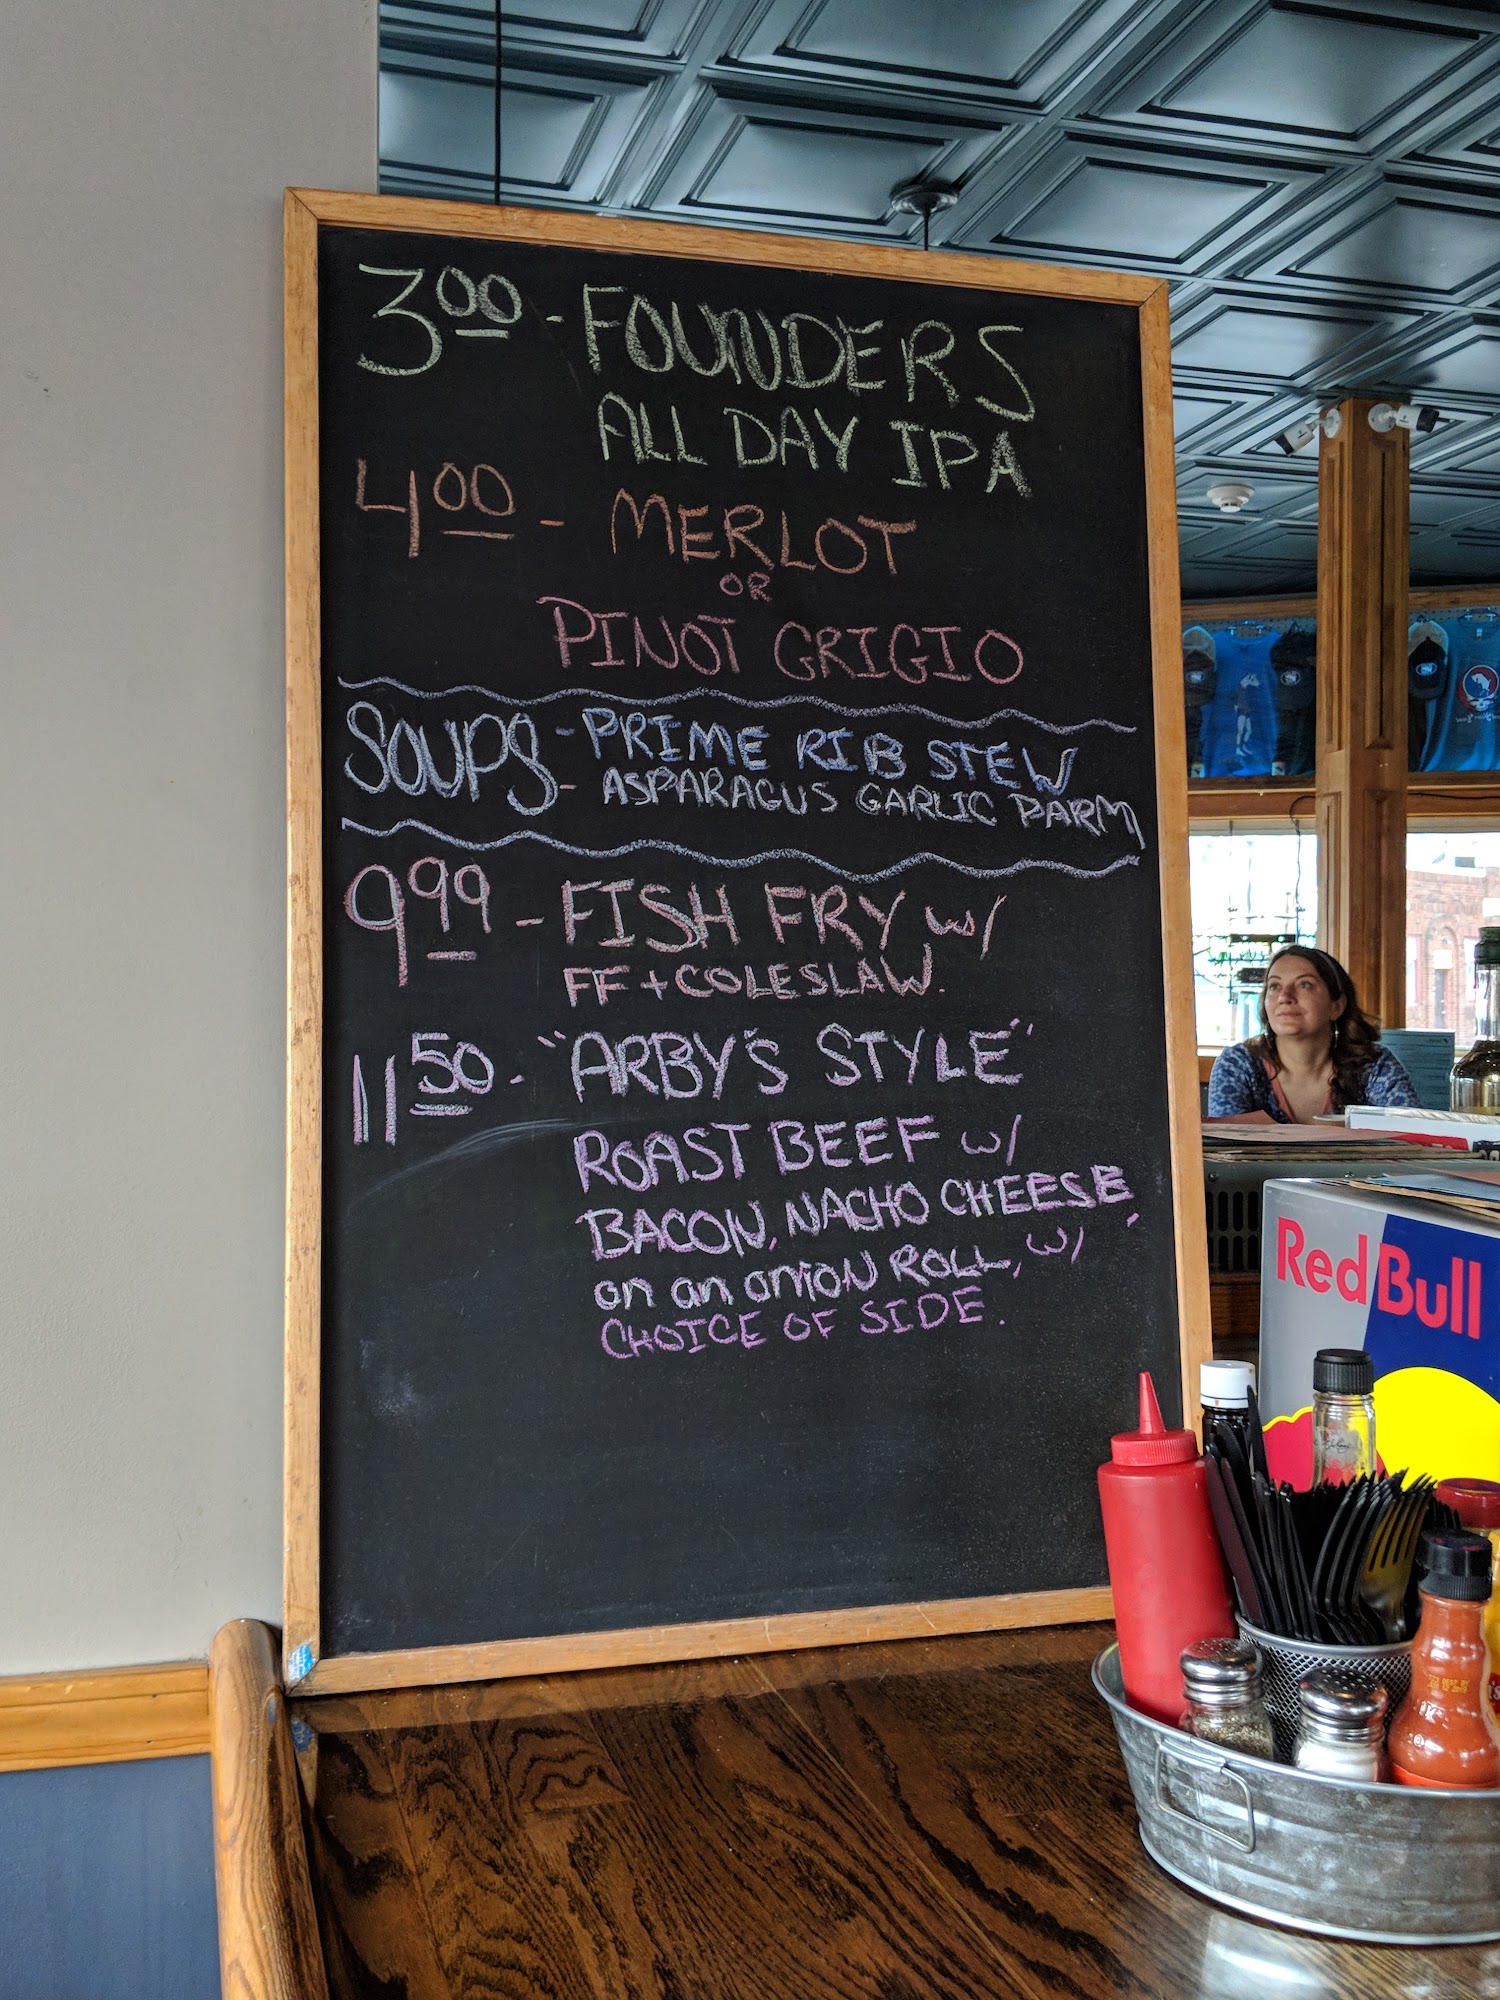 3.00 - FOUNDERS
ALL DAY IPA
4.00 - MERLOT
OR
PINOT GRIGIO
SOUPS - PRIME RIB STEW
- ASPARAGUS GARLIC PARM
9.99 - FISH FRY w/
FF + COLESLAW.
11.50 - "ARBY'S STYLE"
ROAST BEEF w/
BACON, NACHO CHEESE,
on an onioN ROLL, w/
CHOICE OF SIDE.
Red Bull